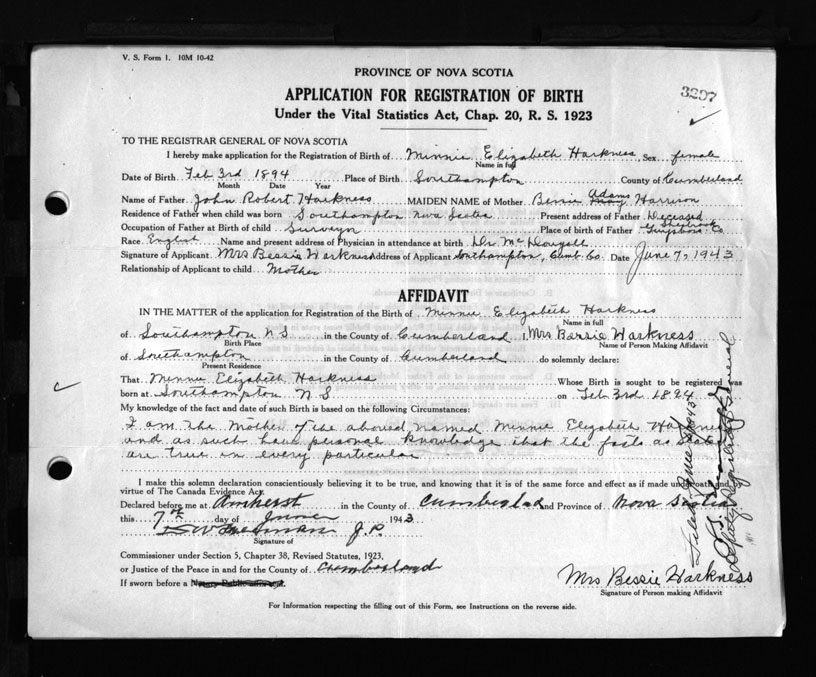 V. S. Form 1. 10M 10-42
PROVINCE OF NOVA SCOTIA
3297
APPLICATION FOR REGISTRATION OF BIRTH
Under the Vital Statistics Act, Chap. 20, R. S. 1923
TO THE REGISTRAR GENERAL OF NOVA SCOTIA
I hereby make application for the Registration of Birth of Minnie Elizabeth Harkness, Sex female
Name in full
Date of Birth Feb 3rd 1894 Place of Birth Southampton County of Cumberland
Month Date Year
Adams
Name of Father John Robert Harkness MAIDEN NAME of Mother Bessie May Harrison
Residence of Father when child was born Southampton Nova Scotia Present address of Father Deceased
Sherbrook
Occupation of Father at Birth of child Surveyor Place of birth of Father Guysboro Co
Race English Name and present address of Physician in attendance at birth Dr McDougall
Signature of Applicant Mrs Bessie Harkness Address of Applicant Southampton, Cumb. Co. Date June 7, 1943
Relationship of Applicant to child Mother
AFFIDAVIT
IN THE MATTER of the application for Registration of the Birth of Minnie Elizabeth Harkness
Name in full
of Southampton N S in the County of Cumberland I, Mrs Bessie Harkness
Birth Place Name of Person Making Affidavit
of Southampton in the County of Cumberland do solemnly declare:
Present Residence
That Minnie Elizabeth Harkness Whose Birth is sought to be registered was
born at Southampton N S on Feb 3rd 1894
My knowledge of the fact and date of such Birth is based on the following Circumstances:
I am the Mother of the above named Minnie Elizabeth Harkness
and as such have personal knowledge that the facts as stated
are true in every particular
I make this solemn declaration conscientiously believing it to be true, and knowing that it is of the same force and effect as if made under oath and by
virtue of The Canada Evidence Act.
Declared before me at Amherst in the County of Cumberland and Province of Nova Scotia
this 7th day of June 1943
J.P.
Signature of
Commissioner under Section 5, Chapter 38, Revised Statutes, 1923,
or Justice of the Peace in and for the County of Cumberland
If sworn before a
Mrs Bessie Harkness
Signature of Person making Affidavit
For Information respecting the filling out of this Form, see Instructions on the reverse side.
Deputy Registrar General